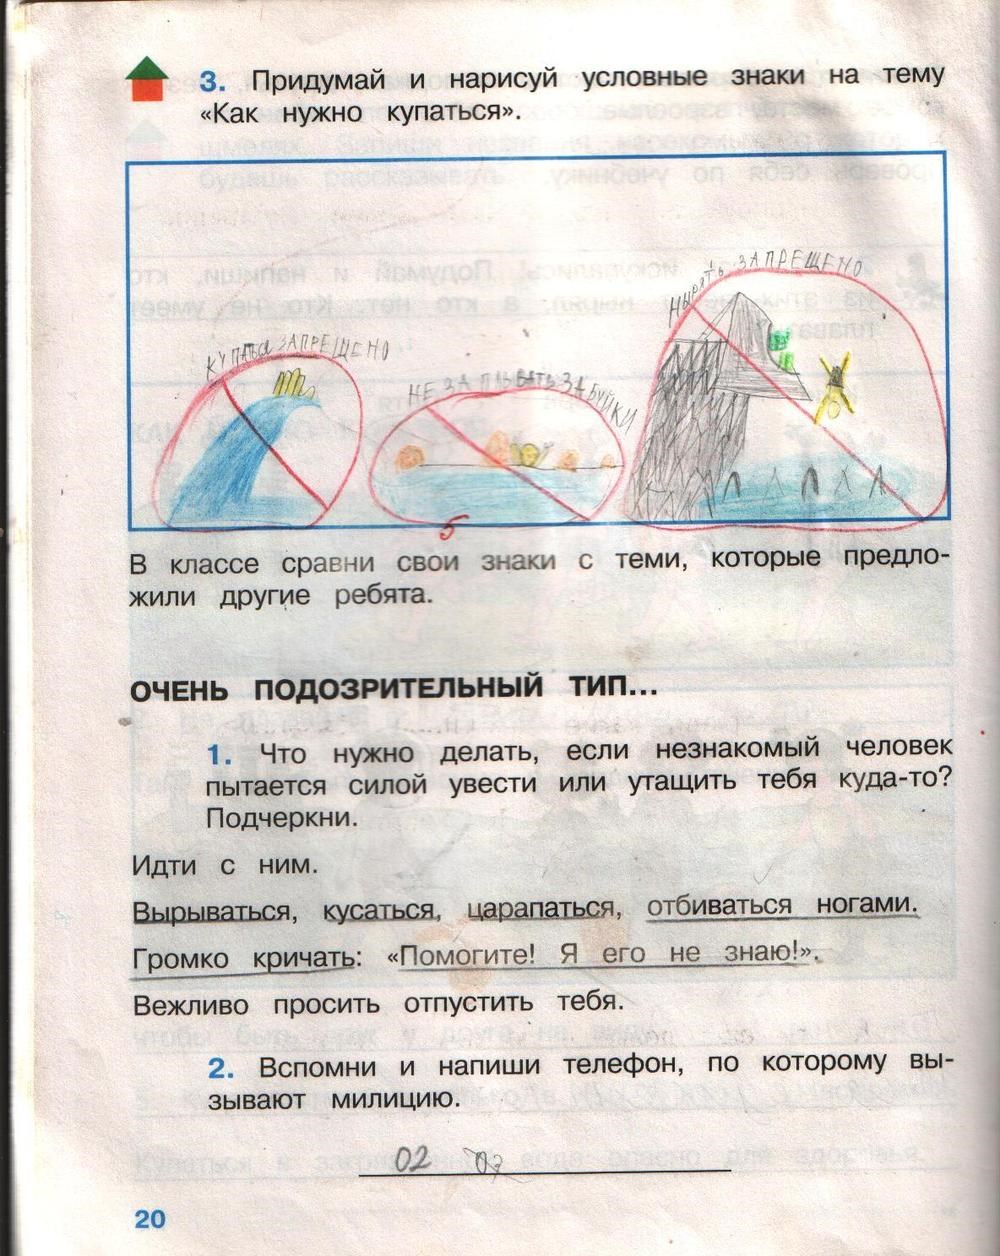 3. Придумай и нарисуй условные знаки на тему
«Как нужно купаться».
КУПАТЬСЯ ЗАПРЕЩЕНО
НЕ ЗАПЛЫВАТЬ ЗА БУЙКИ
НЫРЯТЬ ЗАПРЕЩЕНО
5
В классе сравни свои знаки с теми, которые предло-
жили другие ребята.
ОЧЕНЬ ПОДОЗРИТЕЛЬНЫЙ ТИП...
1. Что нужно делать, если незнакомый человек
пытается силой увести или утащить тебя куда-то?
Подчеркни.
Идти с ним.
Вырываться, кусаться, царапаться, отбиваться ногами.
Громко кричать: «Помогите! Я его не знаю!».
Вежливо просить отпустить тебя.
2. Вспомни и напиши телефон, по которому вы-
зывают милицию.
02
20